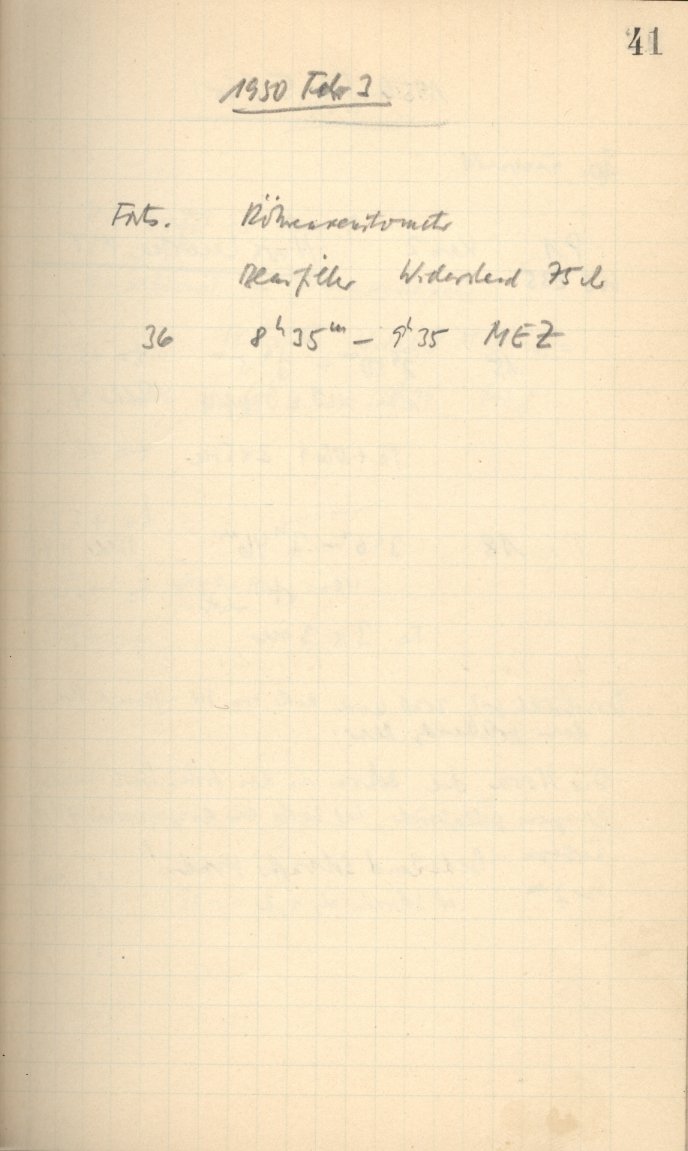 41
1950 Febr 3
Forts. Röhrensensitometer
Blaufilter Widerstand 75
36 8h35m – 9h35 MEZ